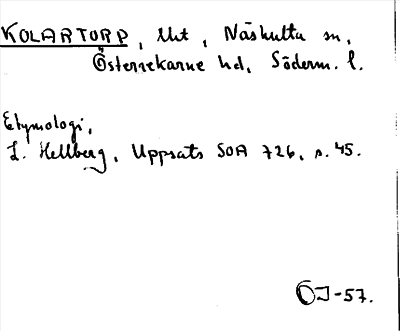 KOLARTORP, Ut, Näshulta sn,
Österrekarne hd, Söderm. l.
Etymologi,
L. Hellberg, Uppsats SOA 726, s. 45.
ÖJ-57.